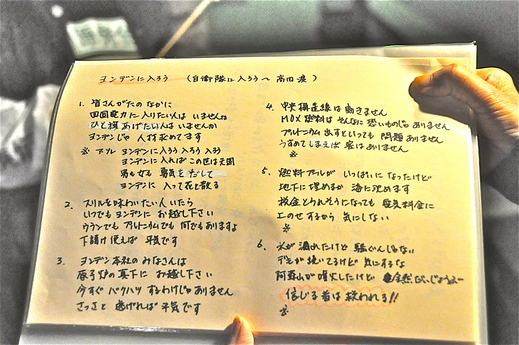 ヨンデンに入ろう （自衛隊に入ろうへ 高田渡）
1. 皆さんがたのなかに
四国電力に入りたい人はいませんか
ひと旗あげたい人はいませんか
ヨンデンじゃ 人材求めてます
※ ヨンデンに入ろう 入ろう 入ろう
ヨンデンに入れば この世は天国
男も女も 勇気をだして
ヨンデンに 入って 花と散る
2. スリルを味わいたい人いたら
いつでも ヨンデンに お越し下さい
ウランでも プルトニウムでも 何でもありますよ
下請け使えば 平気です
3. ヨンデン本社の みなさんは
原子炉の真下に お越し下さい
今すぐ バクハツ するわけじゃありません
さっさと 逃げれば 平気です
4. 中央構造線は 動きません
MOX燃料は そんなに 恐いものじゃ ありません
プルトニウム 出すといっても 問題 ありません
うすめてしまえば 害はありません
5. 燃料プールが いっぱいに なったけど
地下に 埋めるか 海に沈めます
税金とられそうになっても 電気料金に
上のせ するから 気にしない
※
6. 火が 漏れたけど 騒ぐんじゃない
デモが 続いてるけど 気にするな
阿蘇山が 噴火したけど
信じる者は 救われる!!
※